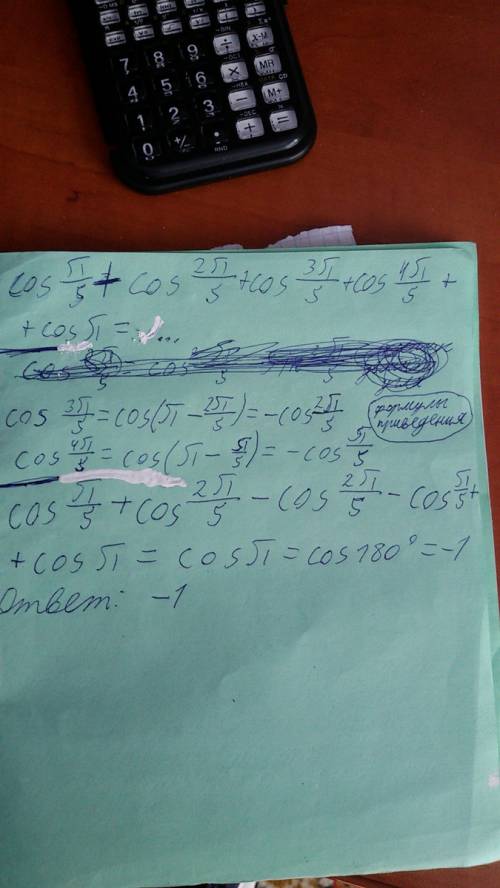 7 8 9 ÷ X-M
4 5 6 × MR
1 2 3 − M+
0 +/- • + =
RND
cos π/5 + cos 2π/5 + cos 3π/5 + cos 4π/5 +
+ cos π = ...
cos 3π/5 = cos(π − 2π/5) = −cos 2π/5
формулы
приведения
cos 4π/5 = cos(π − π/5) = −cos π/5
cos π/5 + cos 2π/5 − cos 2π/5 − cos π/5 +
+ cos π = cos π = cos 180° = −1
Ответ: −1